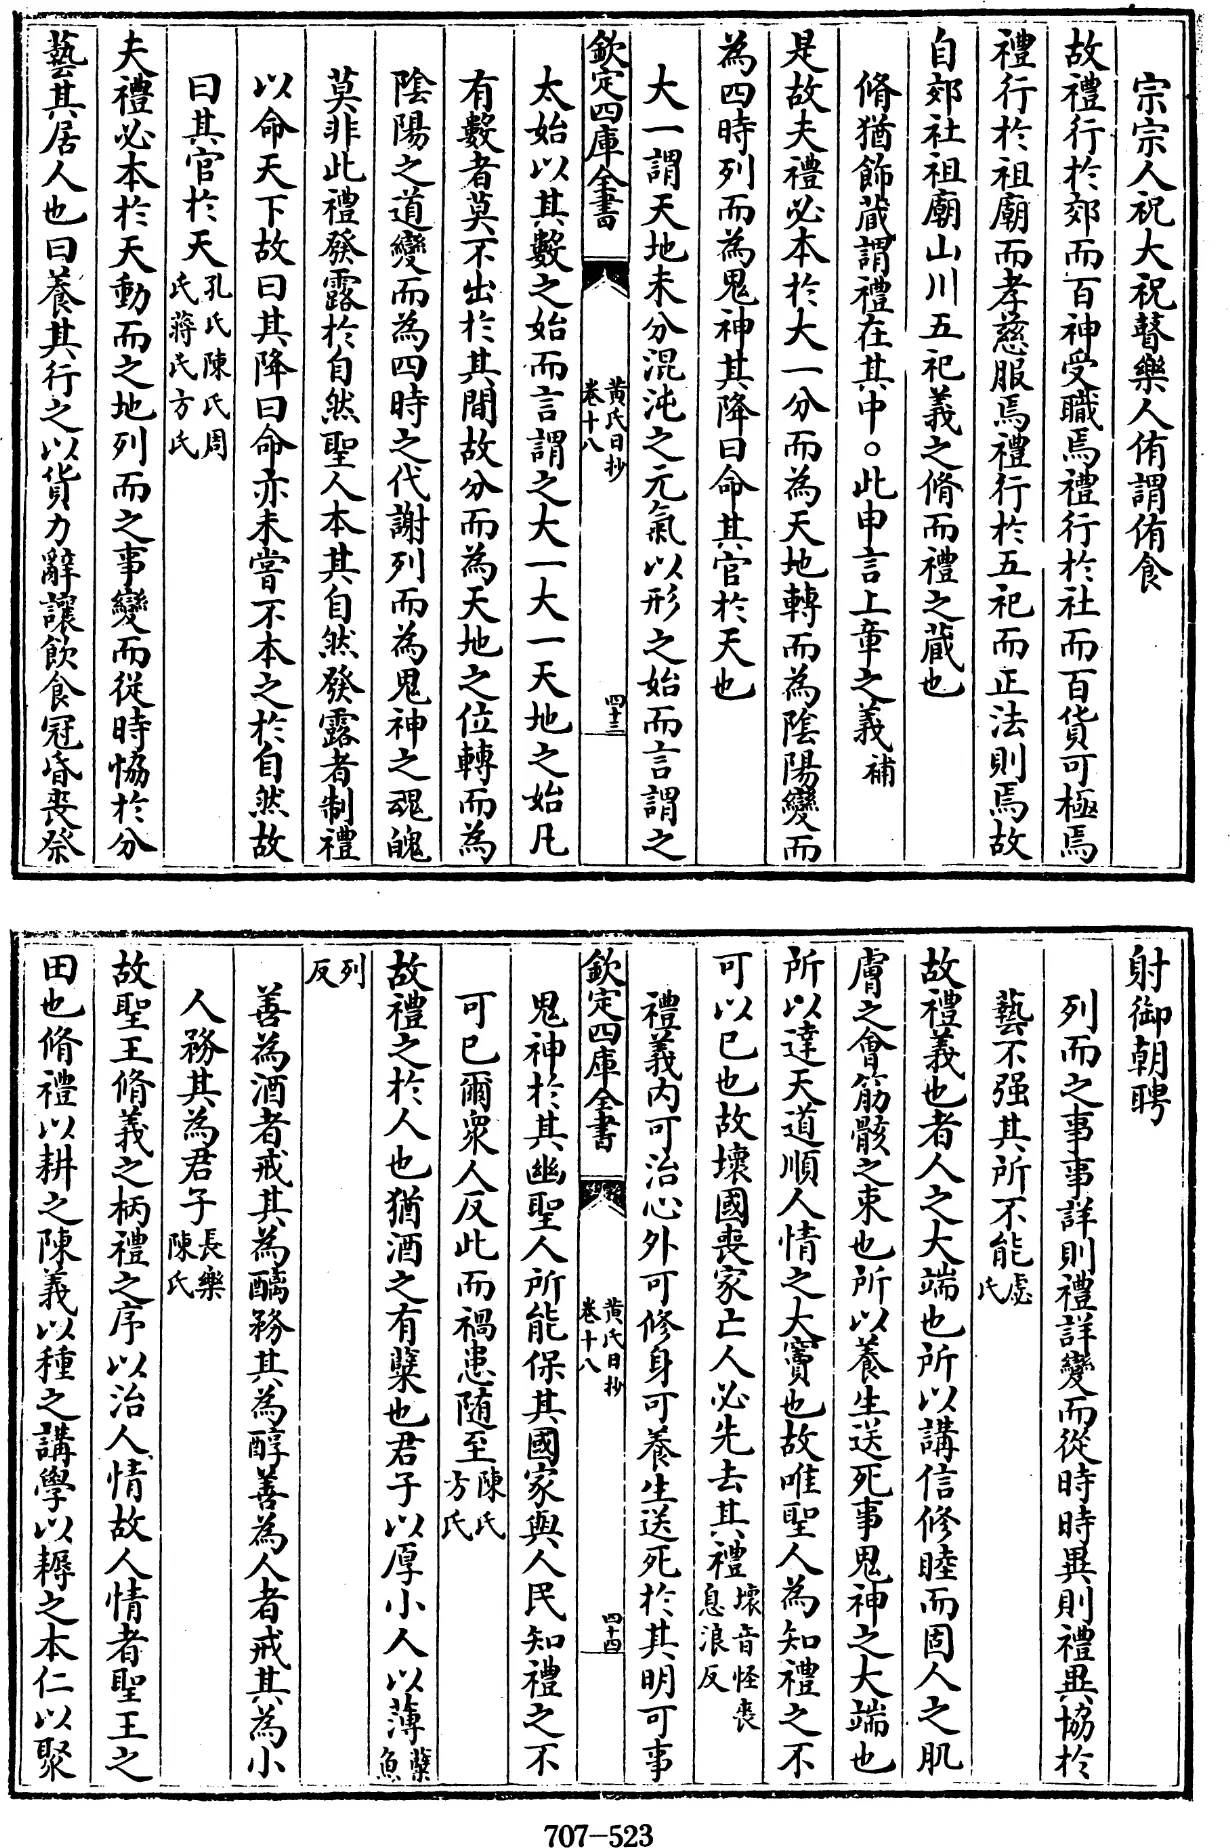 宗宗人祝大祝瞽樂人侑謂侑食
故禮行於郊而百神受職焉禮行於社而百貨可極焉
禮行於祖廟而孝慈服焉禮行於五祀而正法則焉故
自郊社祖廟山川五祀義之脩而禮之藏也
脩猶飾藏謂禮在其中○此申言上章之義補
是故夫禮必本於大一分而為天地轉而為陰陽變而
為四時列而為鬼神其降曰命其官於天也
大一謂天地未分混沌之元氣以形之始而言謂之
欽定四庫全書 黃氏日抄 卷十八 四十三
太始以其數之始而言謂之大一大一天地之始凡
有數者莫不出於其間故分而為天地之位轉而為
陰陽之道變而為四時之代謝列而為鬼神之魂魄
莫非此禮發露於自然聖人本其自然發露者制禮
以命天下故曰其降曰命亦未嘗不本之於自然故
曰其官於天孔氏陳氏周氏蔣氏方氏
夫禮必本於天動而之地列而之事變而從時協於分
藝其居人也曰養其行之以貨力辭讓飲食冠昏喪祭
射御朝聘
列而之事事詳則禮詳變而從時時異則禮異協於
藝不强其所不能處氏
故禮義也者人之大端也所以講信修睦而固人之肌
膚之會筋骸之束也所以養生送死事鬼神之大端也
所以達天道順人情之大竇也故唯聖人為知禮之不
可以已也故壞國喪家亡人必先去其禮壞音怪喪息浪反
禮義内可治心外可修身可養生送死於其明可事
欽定四庫全書 黃氏日抄 卷十八 四十四
鬼神於其幽聖人所能保其國家與人民知禮之不
可已爾衆人反此而禍患随至陳氏方氏
故禮之於人也猶酒之有糵也君子以厚小人以薄糵魚
列反
善為酒者戒其為醨務其為醇善為人者戒其為小
人務其為君子長樂陳氏
故聖王脩義之柄禮之序以治人情故人情者聖王之
田也脩禮以耕之陳義以種之講學以耨之本仁以聚
707-523